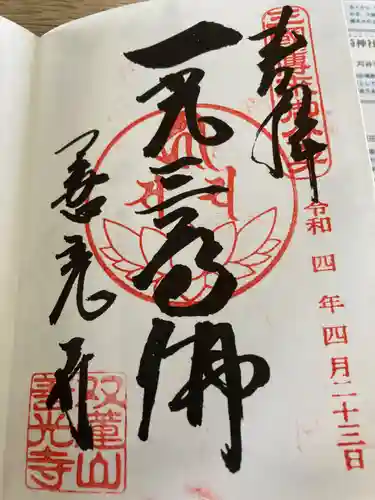 奉拝
令和四年四月二十三日
一光三尊佛
善光寺
双蓮山
善光寺